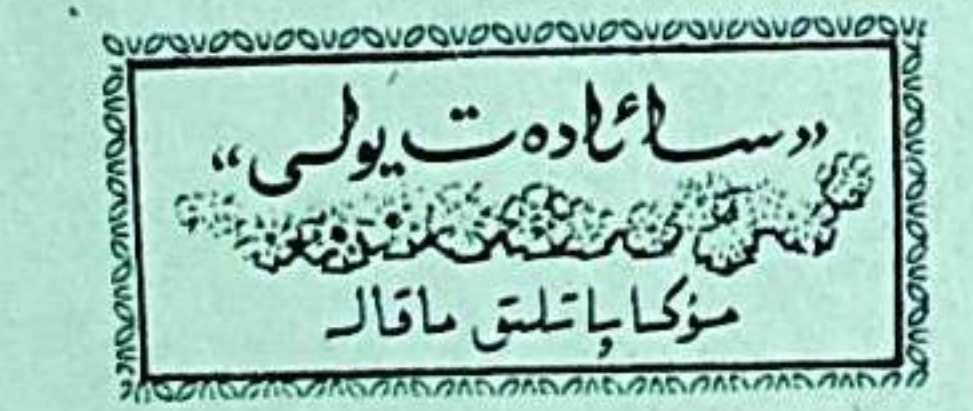 ”سائادەت يولى“
مۇكاپاتلىق ماقالە